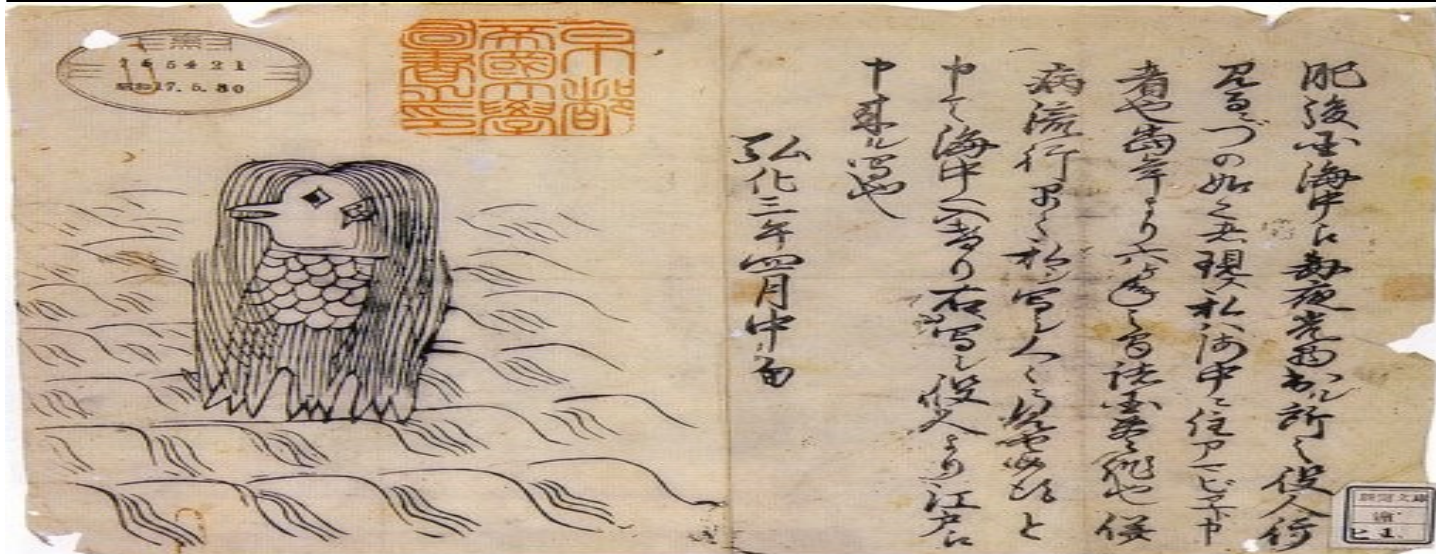 肥後国海中え毎夜光物出ル所之役人行
見るニづの如く之者現ス私ハ海中ニ住アマビヱト申
者也当年より六ヶ年之間諸国豊作也併
病流行早々私シ写シ人々ニ見せ候得と
申て海中へ入けり右写シ役人より江戸え
申来ル写也
弘化三年四月中旬
京都
帝國大學
圖書之印
165421
昭和17.5.30
新聞文庫
繪
ヒ 1